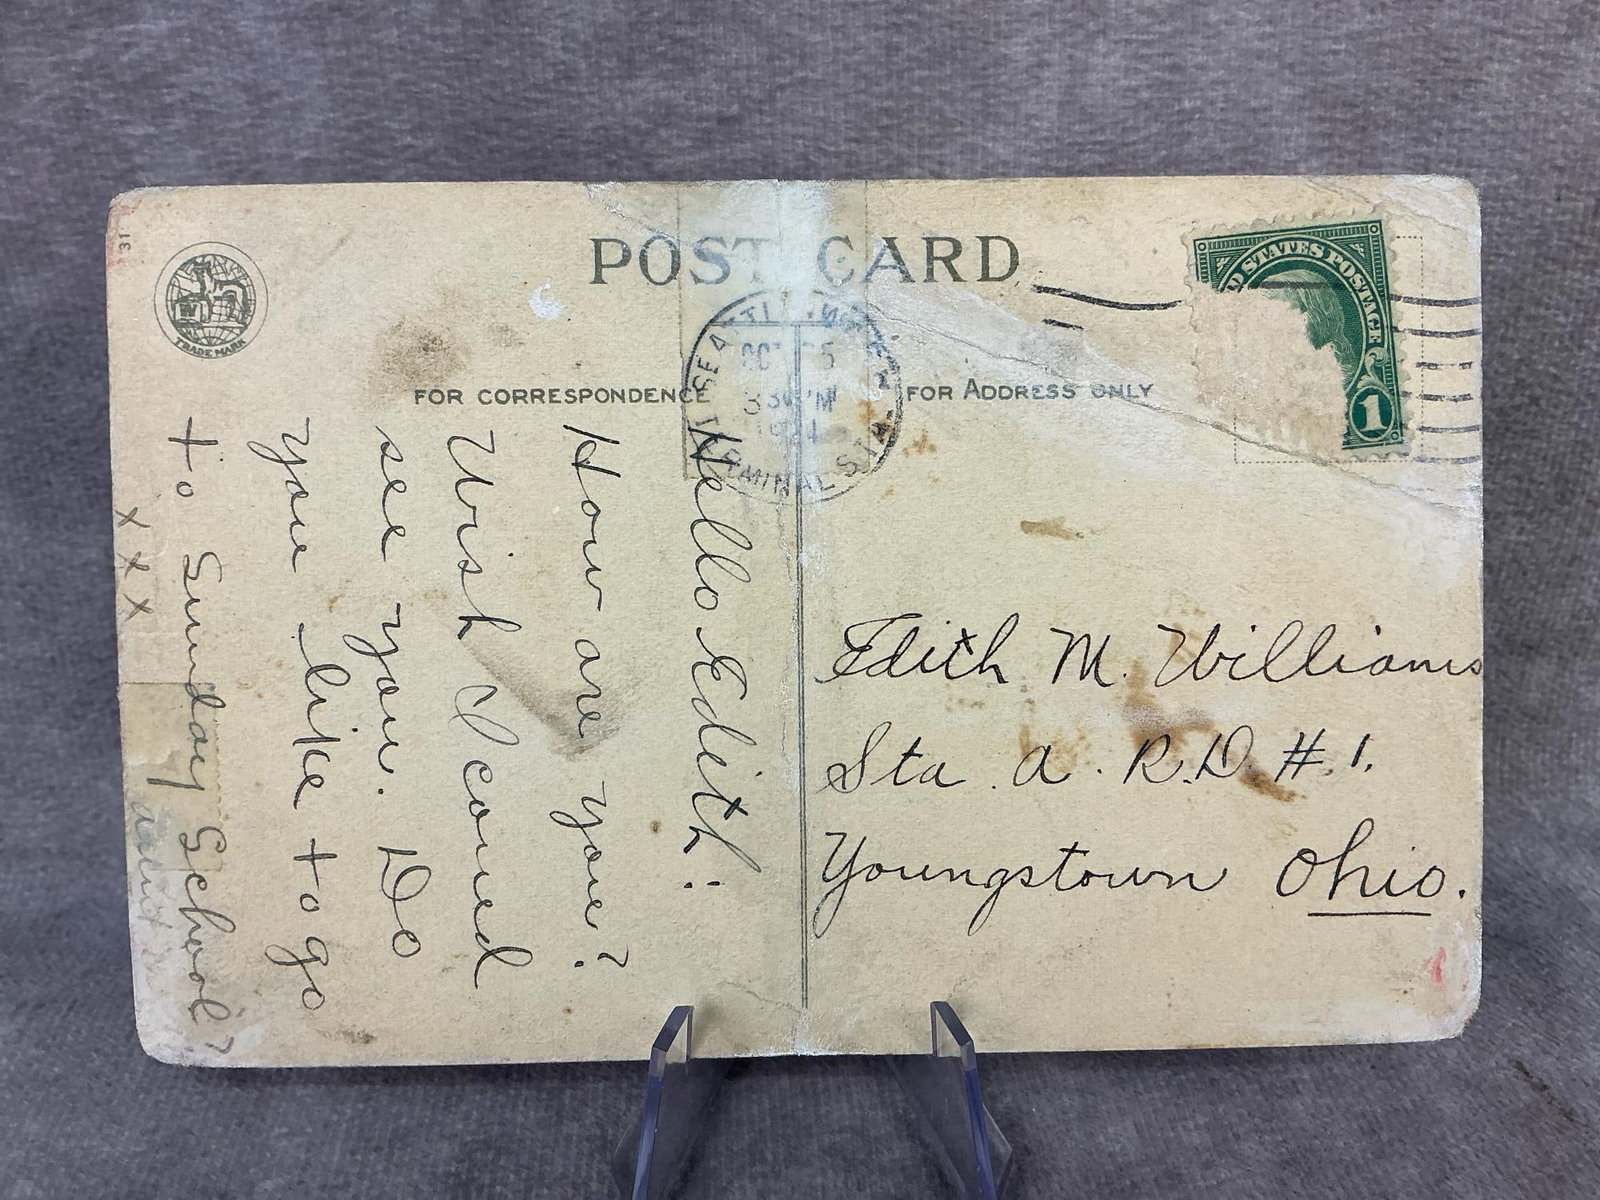 31
TRADE MARK
POST CARD
SEATTLE, WASH.
OCT 5
3 30 PM
1924
TERMINAL STA.
D STATES POSTAGE
1
FOR CORRESPONDENCE
FOR ADDRESS ONLY
Hello Edith:
How are you?
Wish I could
see you. Do
you like to go
to Sunday School?
x x x
Edith M. Williams
Sta a. R.D. #.1.
Youngstown Ohio.